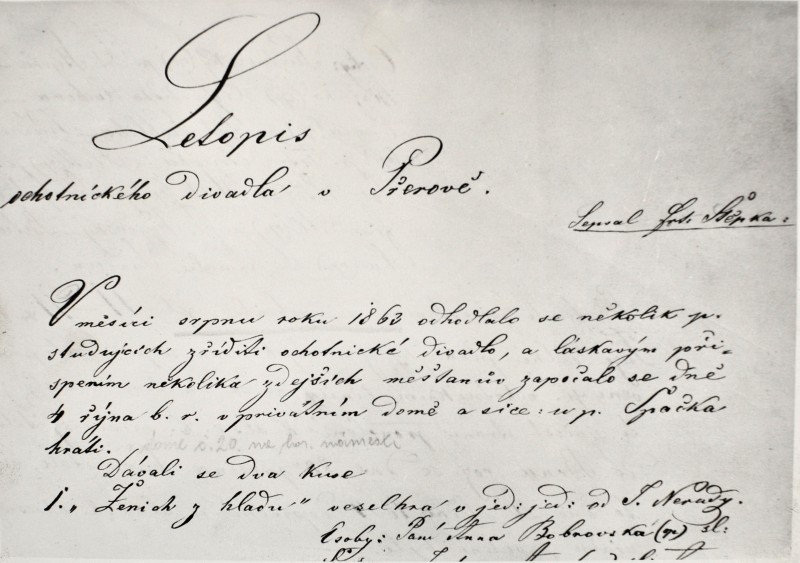 Letopis
ochotnického divadla v Přerově.
Sepsal Frt. Štěpka.
V měsíci srpnu roku 1863 odhodlalo se několik p.
studujících zříditi ochotnické divadlo, a láskavým při-
spením několika zdejších měšťanův započalo se dně
4 října b. r. v privátním domě a sice: u p. Spačka
hráti.
Dávali se dva kuse
1. „Ženich z hladu" veselhra v jed: jed: od J. Nerudy.
Esoby: Paní Anna Bobrovská sl: